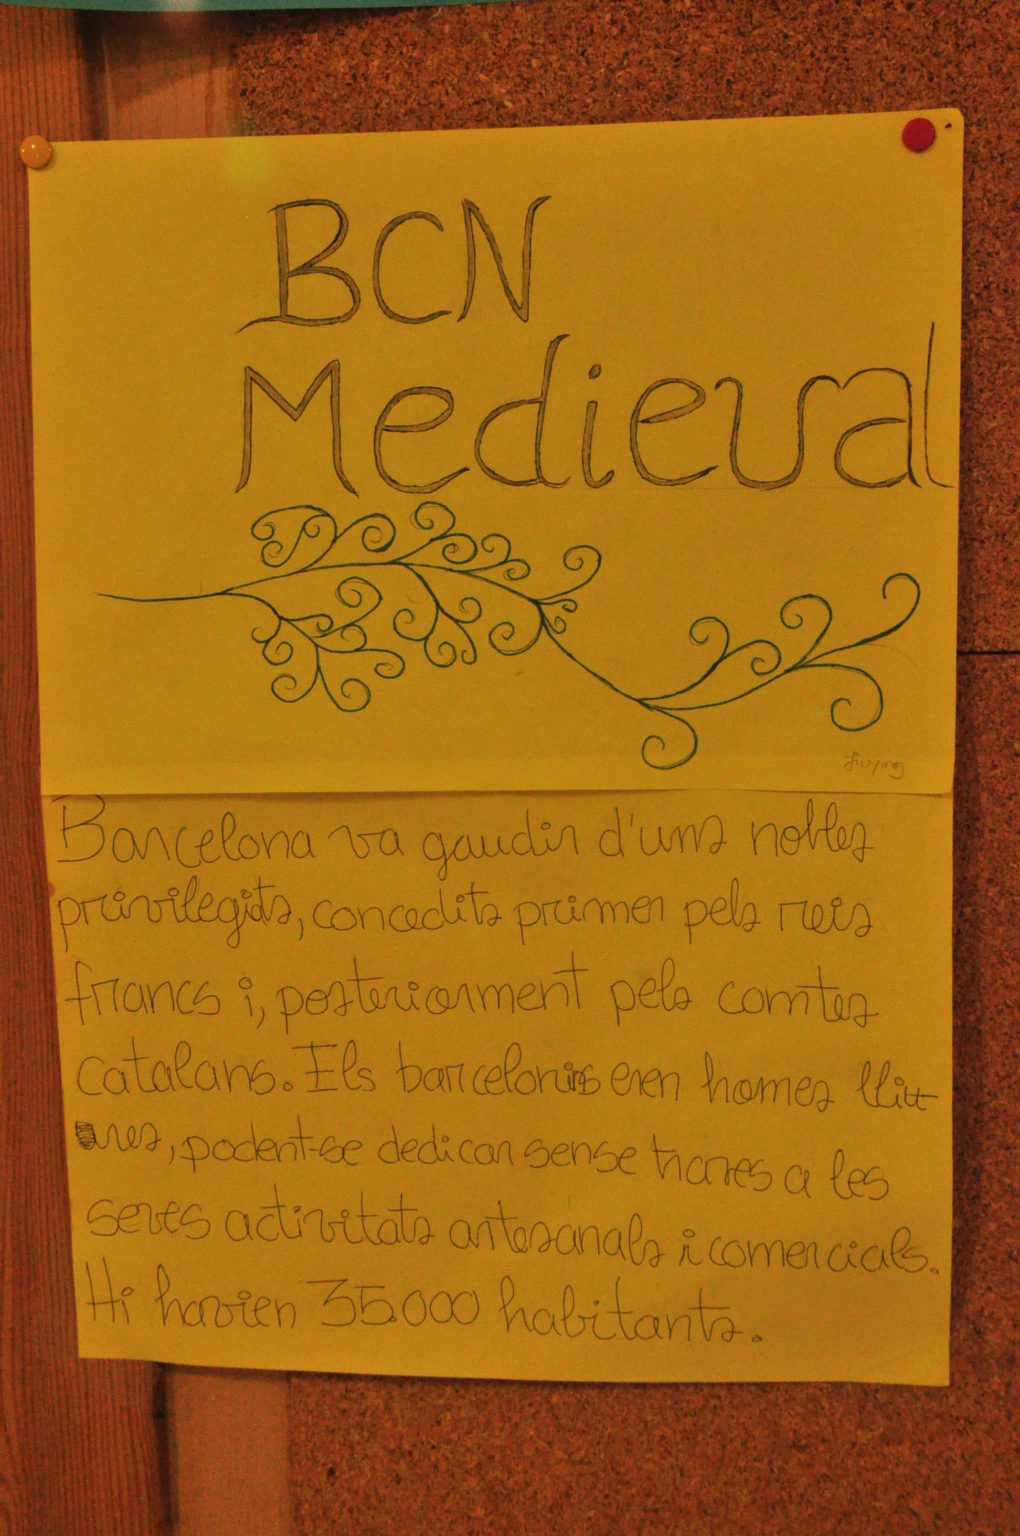 BCN
Medieval
Jiaying
Barcelona va gaudir d'uns nobles
privilegis, concedits primer pels reis
francs i, posteriorment pels comtes
catalans. Els barcelonins eren homes lliu
ures, podent-se dedicar sense traves a les
seves activitats artesanals i comercials.
Hi havien 35.000 habitants.